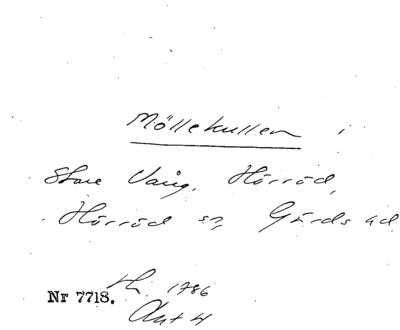 Möllekullen i
Store Vång, Hörröd,
Hörröd sn, Gärds hd
Nr 7718. 1786